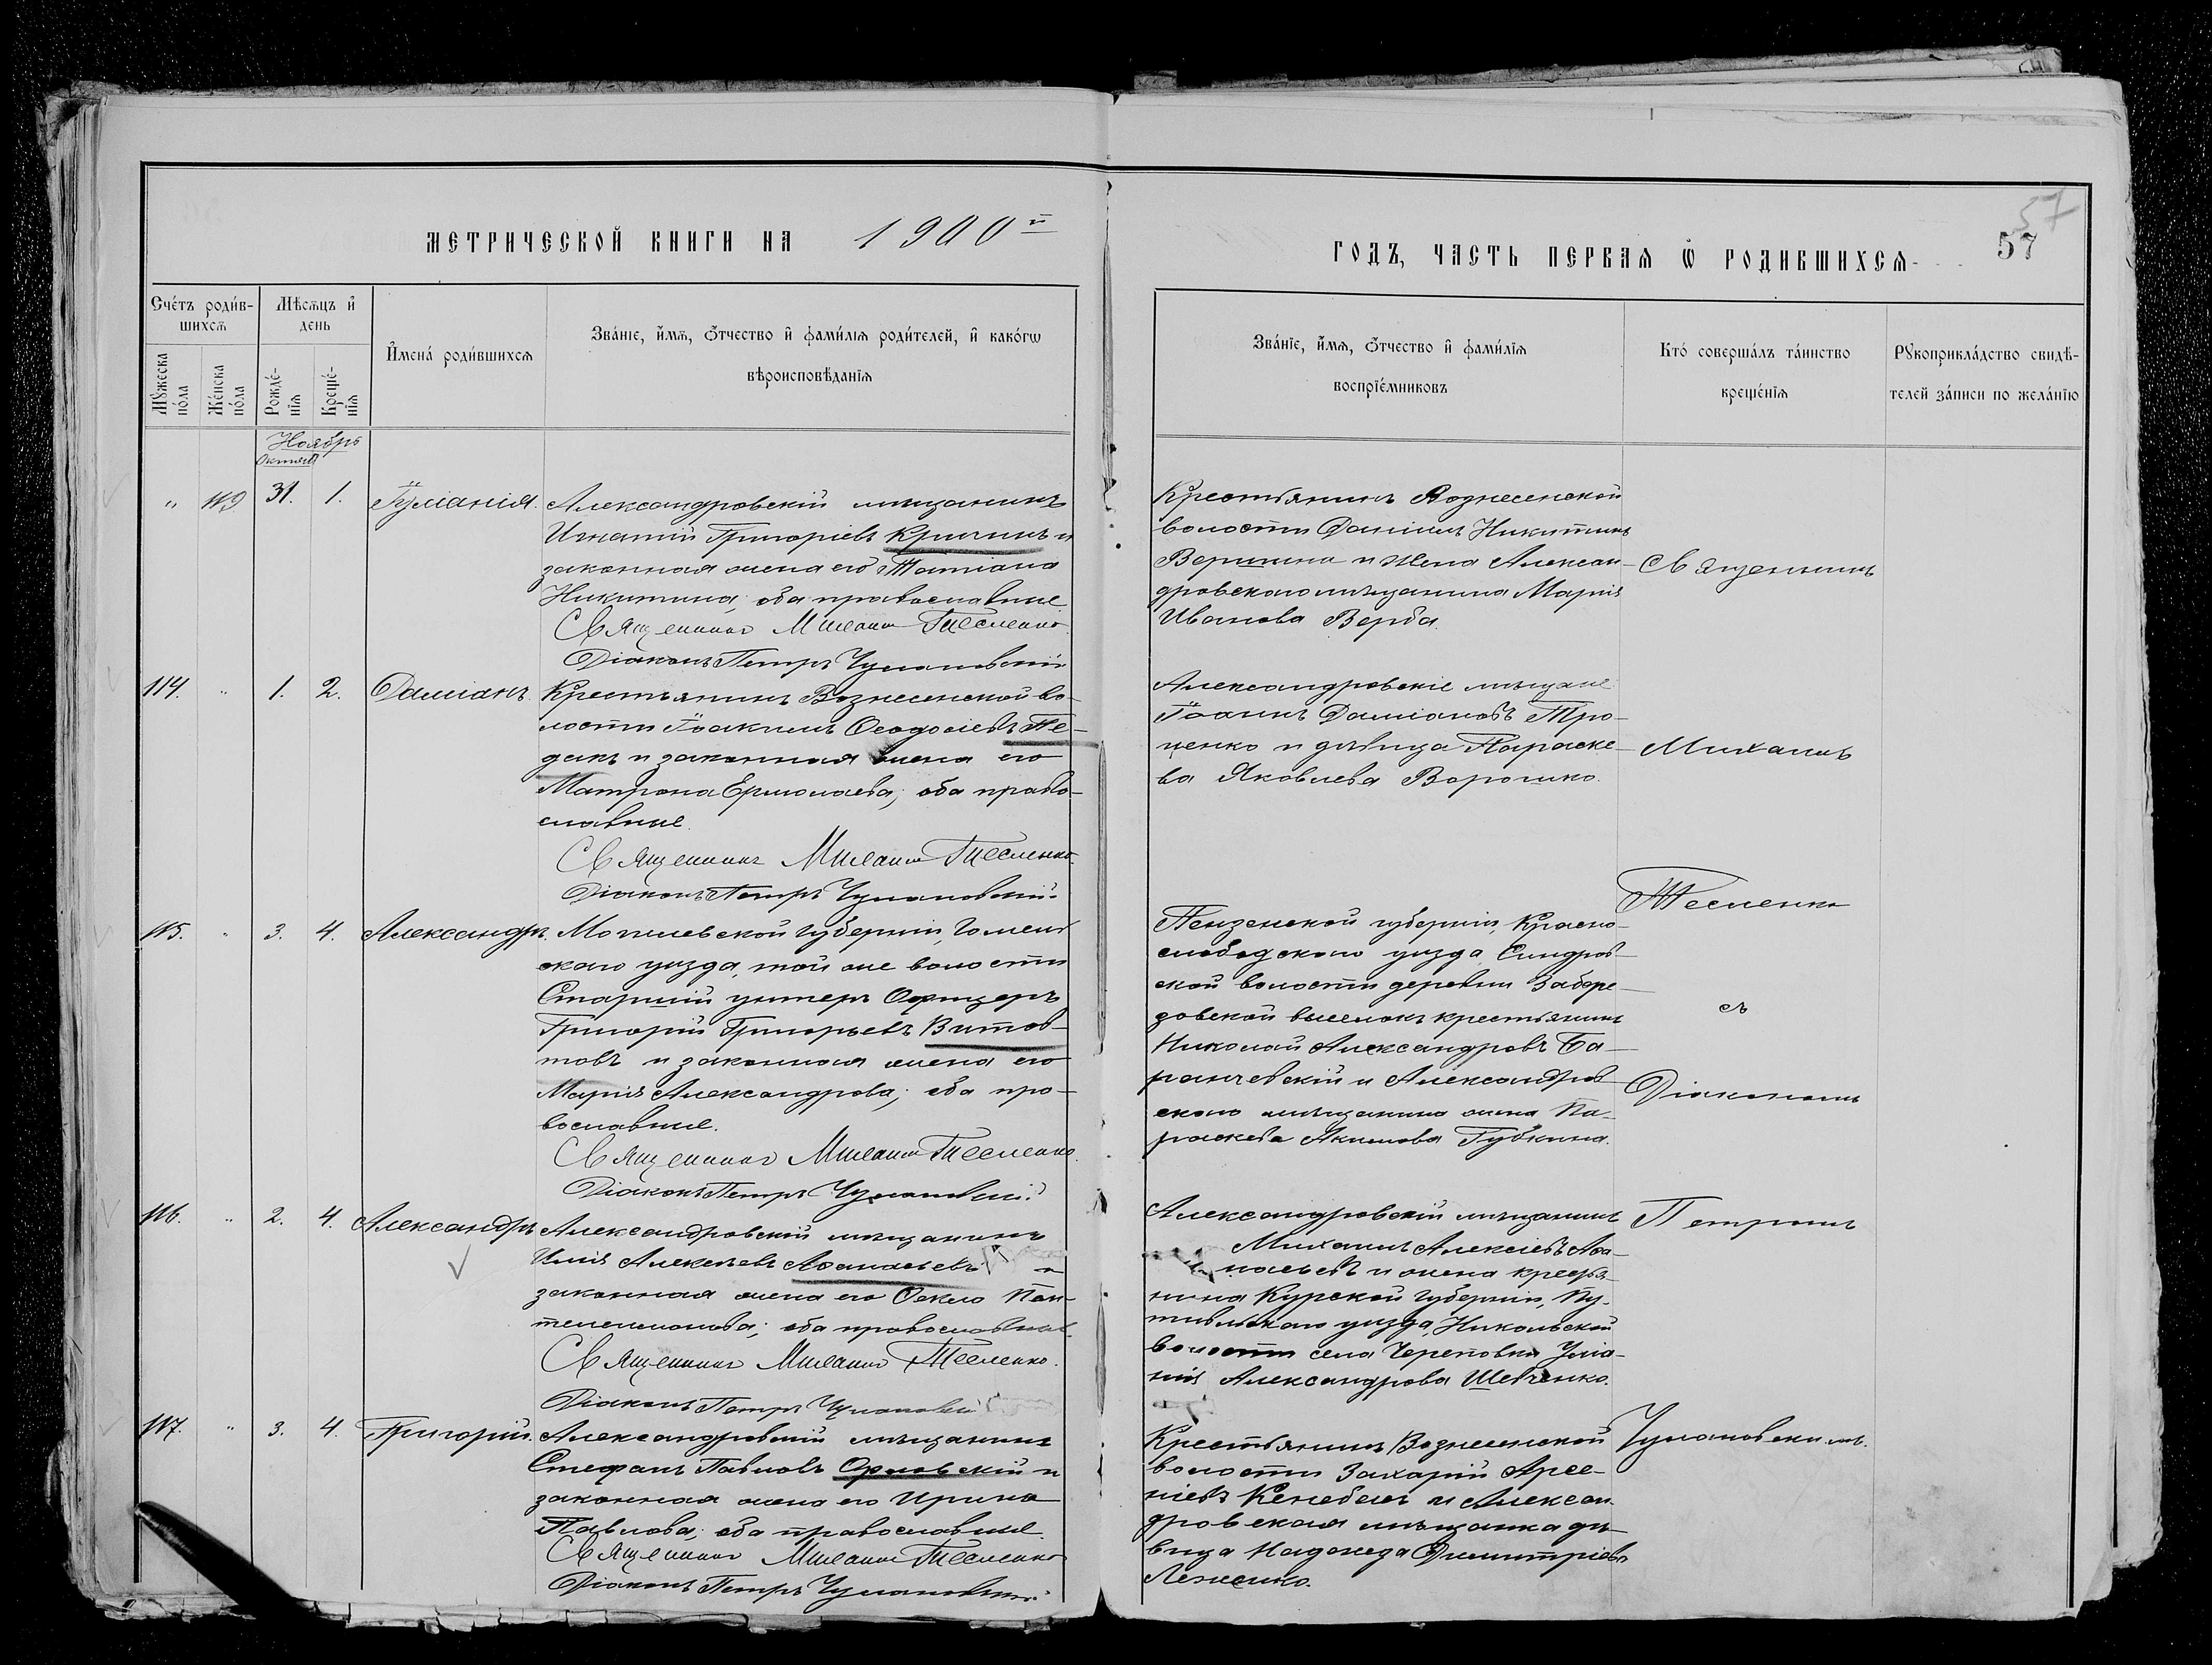 57
МЕТРИЧЕСКОЙ КНИГИ НА 1900й
ГОДЪ, ЧАСТЬ ПЕРВАЯ Ѡ РОДИВШИХСЯ
57
Счётъ роди́в-
шихсѧ
Мѣсѧцъ и҆
день
И҆мена́ роди́вшихсѧ
Зва́нїе, и҆́мѧ, ѻ҆́тчество и҆ фами́лїѧ роди́телей, и҆ како́гѡ
вѣроисповѣ́данїѧ
Мꙋ́жеска
по́ла
Же́нска
по́ла
Рожде́-
нїѧ
Креще́-
нїѧ
Зва́нїе, и҆́мѧ, ѻ҆́тчество и҆ фами́лїѧ
воспрїе́мниковъ
Кто̀ соверша́лъ та́инство
креще́нїѧ
Рꙋкоприкла́дство свидѣ́-
телей за́писи по жела́нїю
Ноябрь
" 119 31. 1. Іуліанія.
Александровскій мѣщанинъ
Игнатій Григоріевъ Кричинъ и
законная жена его Татіана
Никитина, оба православные
Священникъ Михаилъ Тесленко.
Діаконъ Петръ Чумановскій
Крестьянинъ Вознесенской
волости Даніилъ Никитинъ
и жена Алексан-
дровскаго мѣщанина Марія
Иванова Верба.
114. " 1. 2. Даміанъ.
Крестьянинъ Вознесенской во-
лости Іоакимъ Ѳеодосіевъ Пе-
дакъ и законная жена его
Матрона Ермолаева; оба право-
славные.
Священникъ Михаилъ Тесленко.
Діаконъ Петръ Чумановскій
Александровскіе мѣщане
Іоаннъ Даміановъ Тро-
ценко и дѣвица Параске-
ва Яковлева Ворошко.
115. " 3. 4. Александръ.
Могилевской губерніи, Гомель-
скаго уѣзда, той же волости
Старшій унтеръ Офицеръ
Григорій Григорьевъ Витов-
товъ и законная жена его
Марія Александрова; оба пра-
вославные.
Священникъ Михаилъ Тесленко.
Діаконъ Петръ Чумановскій
Пензенской губерніи, Красно-
слободскаго уѣзда, Синдров-
ской волости деревни Забере-
зовской выселокъ крестьянинъ
Николай Александровъ Ба-
ранчевскій и Александров-
скаго мѣщанина жена Па-
раскева Акимова Губкина.
116. " 2. 4. Александръ
Александровскій мѣщанинъ
Илія Алексѣевъ Аѳанасьевъ и
законная жена его Ѳекла Пан-
телеимонова; оба православные.
Священникъ Михаилъ Тесленко.
Діаконъ Петръ Чумановскій
Александровскій мѣщанинъ
Михаилъ Алексіевъ Аѳа-
насьевъ и жена крестья-
нина Курской губерніи, Пу-
тивльскаго уѣзда, Никольской
волости села Череповки Уліа-
нія Александрова Шевченко.
117. " 3. 4. Григорій.
Александровскій мѣщанинъ
Стефанъ Павловъ Орловскій и
законная жена его Ирина
Павлова; оба православные.
Священникъ Михаилъ Тесленко
Діаконъ Петръ Чумановскій
Крестьянинъ Вознесенской
волости Захарій Арсе-
ніевъ и Алексан-
дровская мѣщанка дѣ-
вица Надежда Димитріева
Священникъ
Михаилъ
Тесленко
съ
Діакономъ
Петромъ
Чумановскимъ.